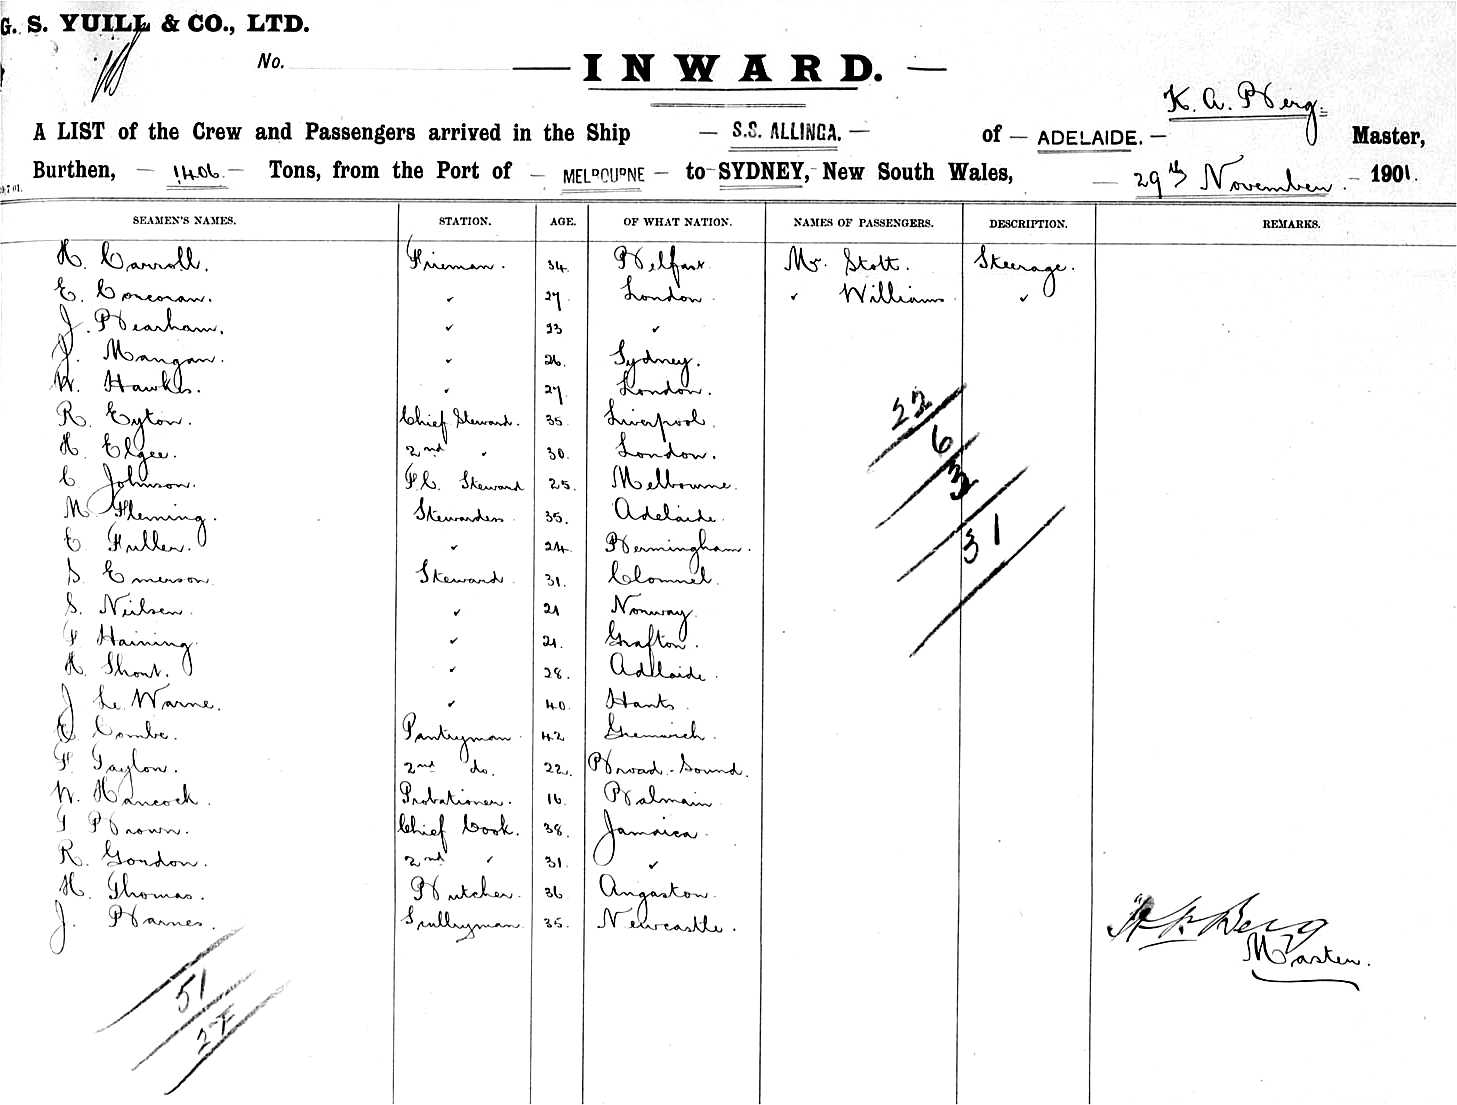 G. S. YUILL & CO., LTD.
No.
INWARD.
K. A. Berg
A LIST of the Crew and Passengers arrived in the Ship — S.S. ALLINGA. — of — ADELAIDE. — Master,
Burthen, — 1406 — Tons, from the Port of — MELBOURNE — to SYDNEY, New South Wales, — 29th November. — 1901.
SEAMEN'S NAMES. STATION. AGE. OF WHAT NATION. NAMES OF PASSENGERS. DESCRIPTION. REMARKS.
H. Carroll. Fireman. 34. Belfast. Mr. Stott. Steerage.
E. Corcoran. " 27. London. " Williams. "
J. Bearham. " 23 "
J. Mangan. " 26. Sydney.
W. Hawkes. " 27. London.
R. Eyton. Chief Steward. 35. Liverpool.
H. Elgee. 2nd " 30. London.
C Johnson. F.C. Steward 25. Melbourne.
M Fleming. Stewardess. 35. Adelaide.
E Fuller. " 24. Bermingham.
S. Emerson. Steward. 31. Clonmel.
S. Neilsen. " 21 Norway
F Haining. " 21. Grafton.
H. Shont. " 28. Adelaide.
J Le Warne. " 40. Hants.
C Combe. Pantryman. 42. Greenwich.
F. Taylor. 2nd do. 22. Broad-Sound.
W. Hancock. Probationer. 16. Balmain.
T Brown. Chief Cook. 38. Jamaica.
R. Gordon. 2nd " 31. "
H. Thomas. Butcher. 36 Angaston.
J. Barnes. Scullryman. 35. Newcastle.
22
6
3
31
Berg
Master.
51
2F